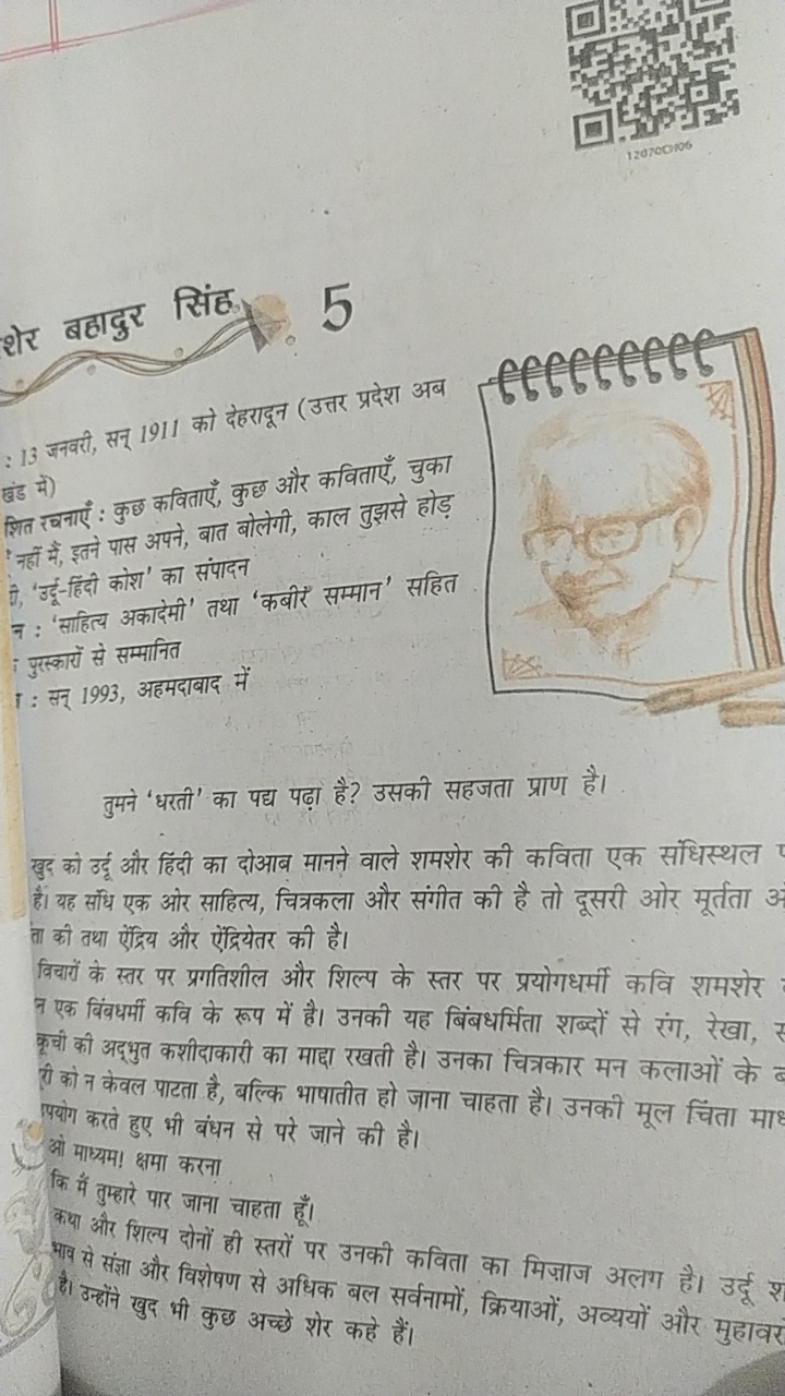 12070CH06
शेर बहादुर सिंह 5
: 13 जनवरी, सन् 1911 को देहरादून (उत्तर प्रदेश अब
खंड में)
शित रचनाएँ : कुछ कविताएँ, कुछ और कविताएँ, चुका
नहीं मैं, इतने पास अपने, बात बोलेगी, काल तुझसे होड़
'उर्दू-हिंदी कोश' का संपादन
न : 'साहित्य अकादेमी' तथा 'कबीर सम्मान' सहित
पुरस्कारों से सम्मानित
: सन् 1993, अहमदाबाद में
तुमने 'धरती' का पद्य पढ़ा है? उसकी सहजता प्राण है।
खुद को उर्दू और हिंदी का दोआब मानने वाले शमशेर की कविता एक संधिस्थल
है। यह संधि एक ओर साहित्य, चित्रकला और संगीत की है तो दूसरी ओर मूर्तता
ता की तथा ऐंद्रिय और ऐंद्रियेतर की है।
विचारों के स्तर पर प्रगतिशील और शिल्प के स्तर पर प्रयोगधर्मी कवि शमशेर
न एक बिंबधर्मी कवि के रूप में है। उनकी यह बिंबधर्मिता शब्दों से रंग, रेखा,
कूची की अद्भुत कशीदाकारी का माद्दा रखती है। उनका चित्रकार मन कलाओं के
री को न केवल पाटता है, बल्कि भाषातीत हो जाना चाहता है। उनकी मूल चिंता माध
पयोग करते हुए भी बंधन से परे जाने की है।
ओ माध्यम! क्षमा करना
कि मैं तुम्हारे पार जाना चाहता हूँ।
कथा और शिल्प दोनों ही स्तरों पर उनकी कविता का मिज़ाज अलग है। उर्दू श
भाव से संज्ञा और विशेषण से अधिक बल सर्वनामों, क्रियाओं, अव्ययों और मुहावर
है। उन्होंने खुद भी कुछ अच्छे शेर कहे हैं।